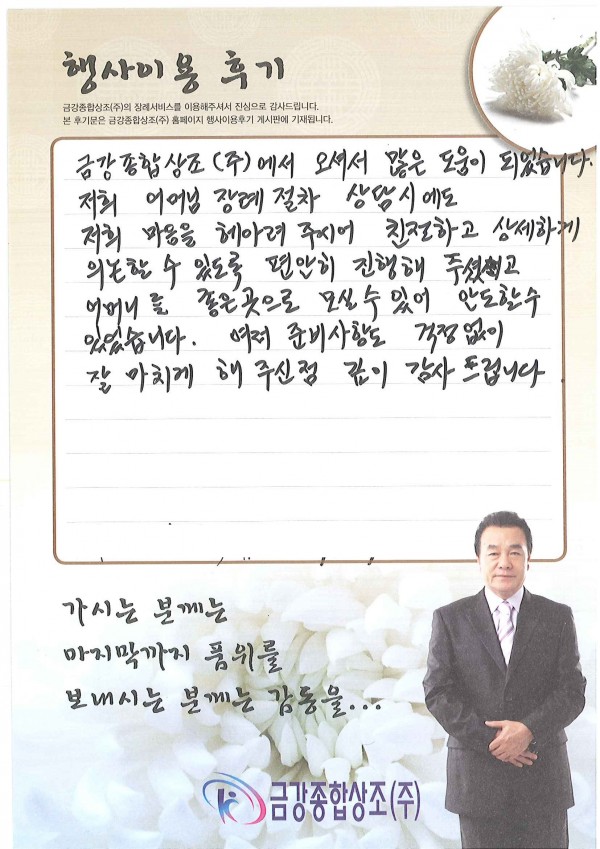 행사이용 후기
금강종합상조(주)의 장례서비스를 이용해주셔서 진심으로 감사드립니다.
본 후기문은 금강종합상조(주) 홈페이지 행사이용후기 게시판에 기재됩니다.
금강종합상조(주)에서 오셔서 많은 도움이 되었습니다.
저희 어머님 장례절차 상담시에도
저희 마음을 헤아려 주시어 친절하고 상세하게
의논할 수 있도록 편안히 진행해 주셨고
어머니를 좋은곳으로 모실수 있어 안도할수
있었습니다. 여적 준비사항도 걱정없이
잘 마치게 해 주신점 깊이 감사 드립니다
가시는 분께는
마지막까지 품위를
보내시는 분께는 감동을...
금강종합상조(주)